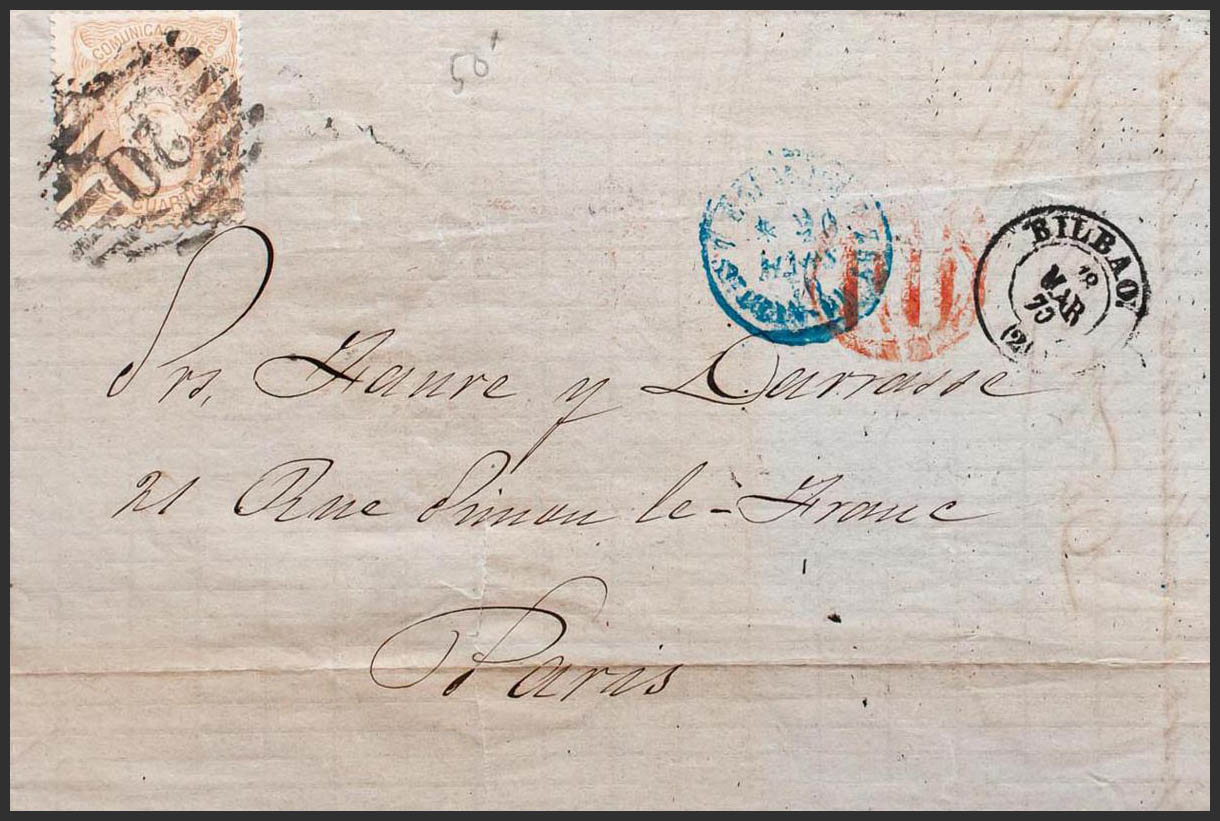 COMUNICACIONES
50
20
CUARTOS
BILBAO
MAR
(2)
Srs, Faure y Darrasse
21 Rue Simon le-Franc
Paris